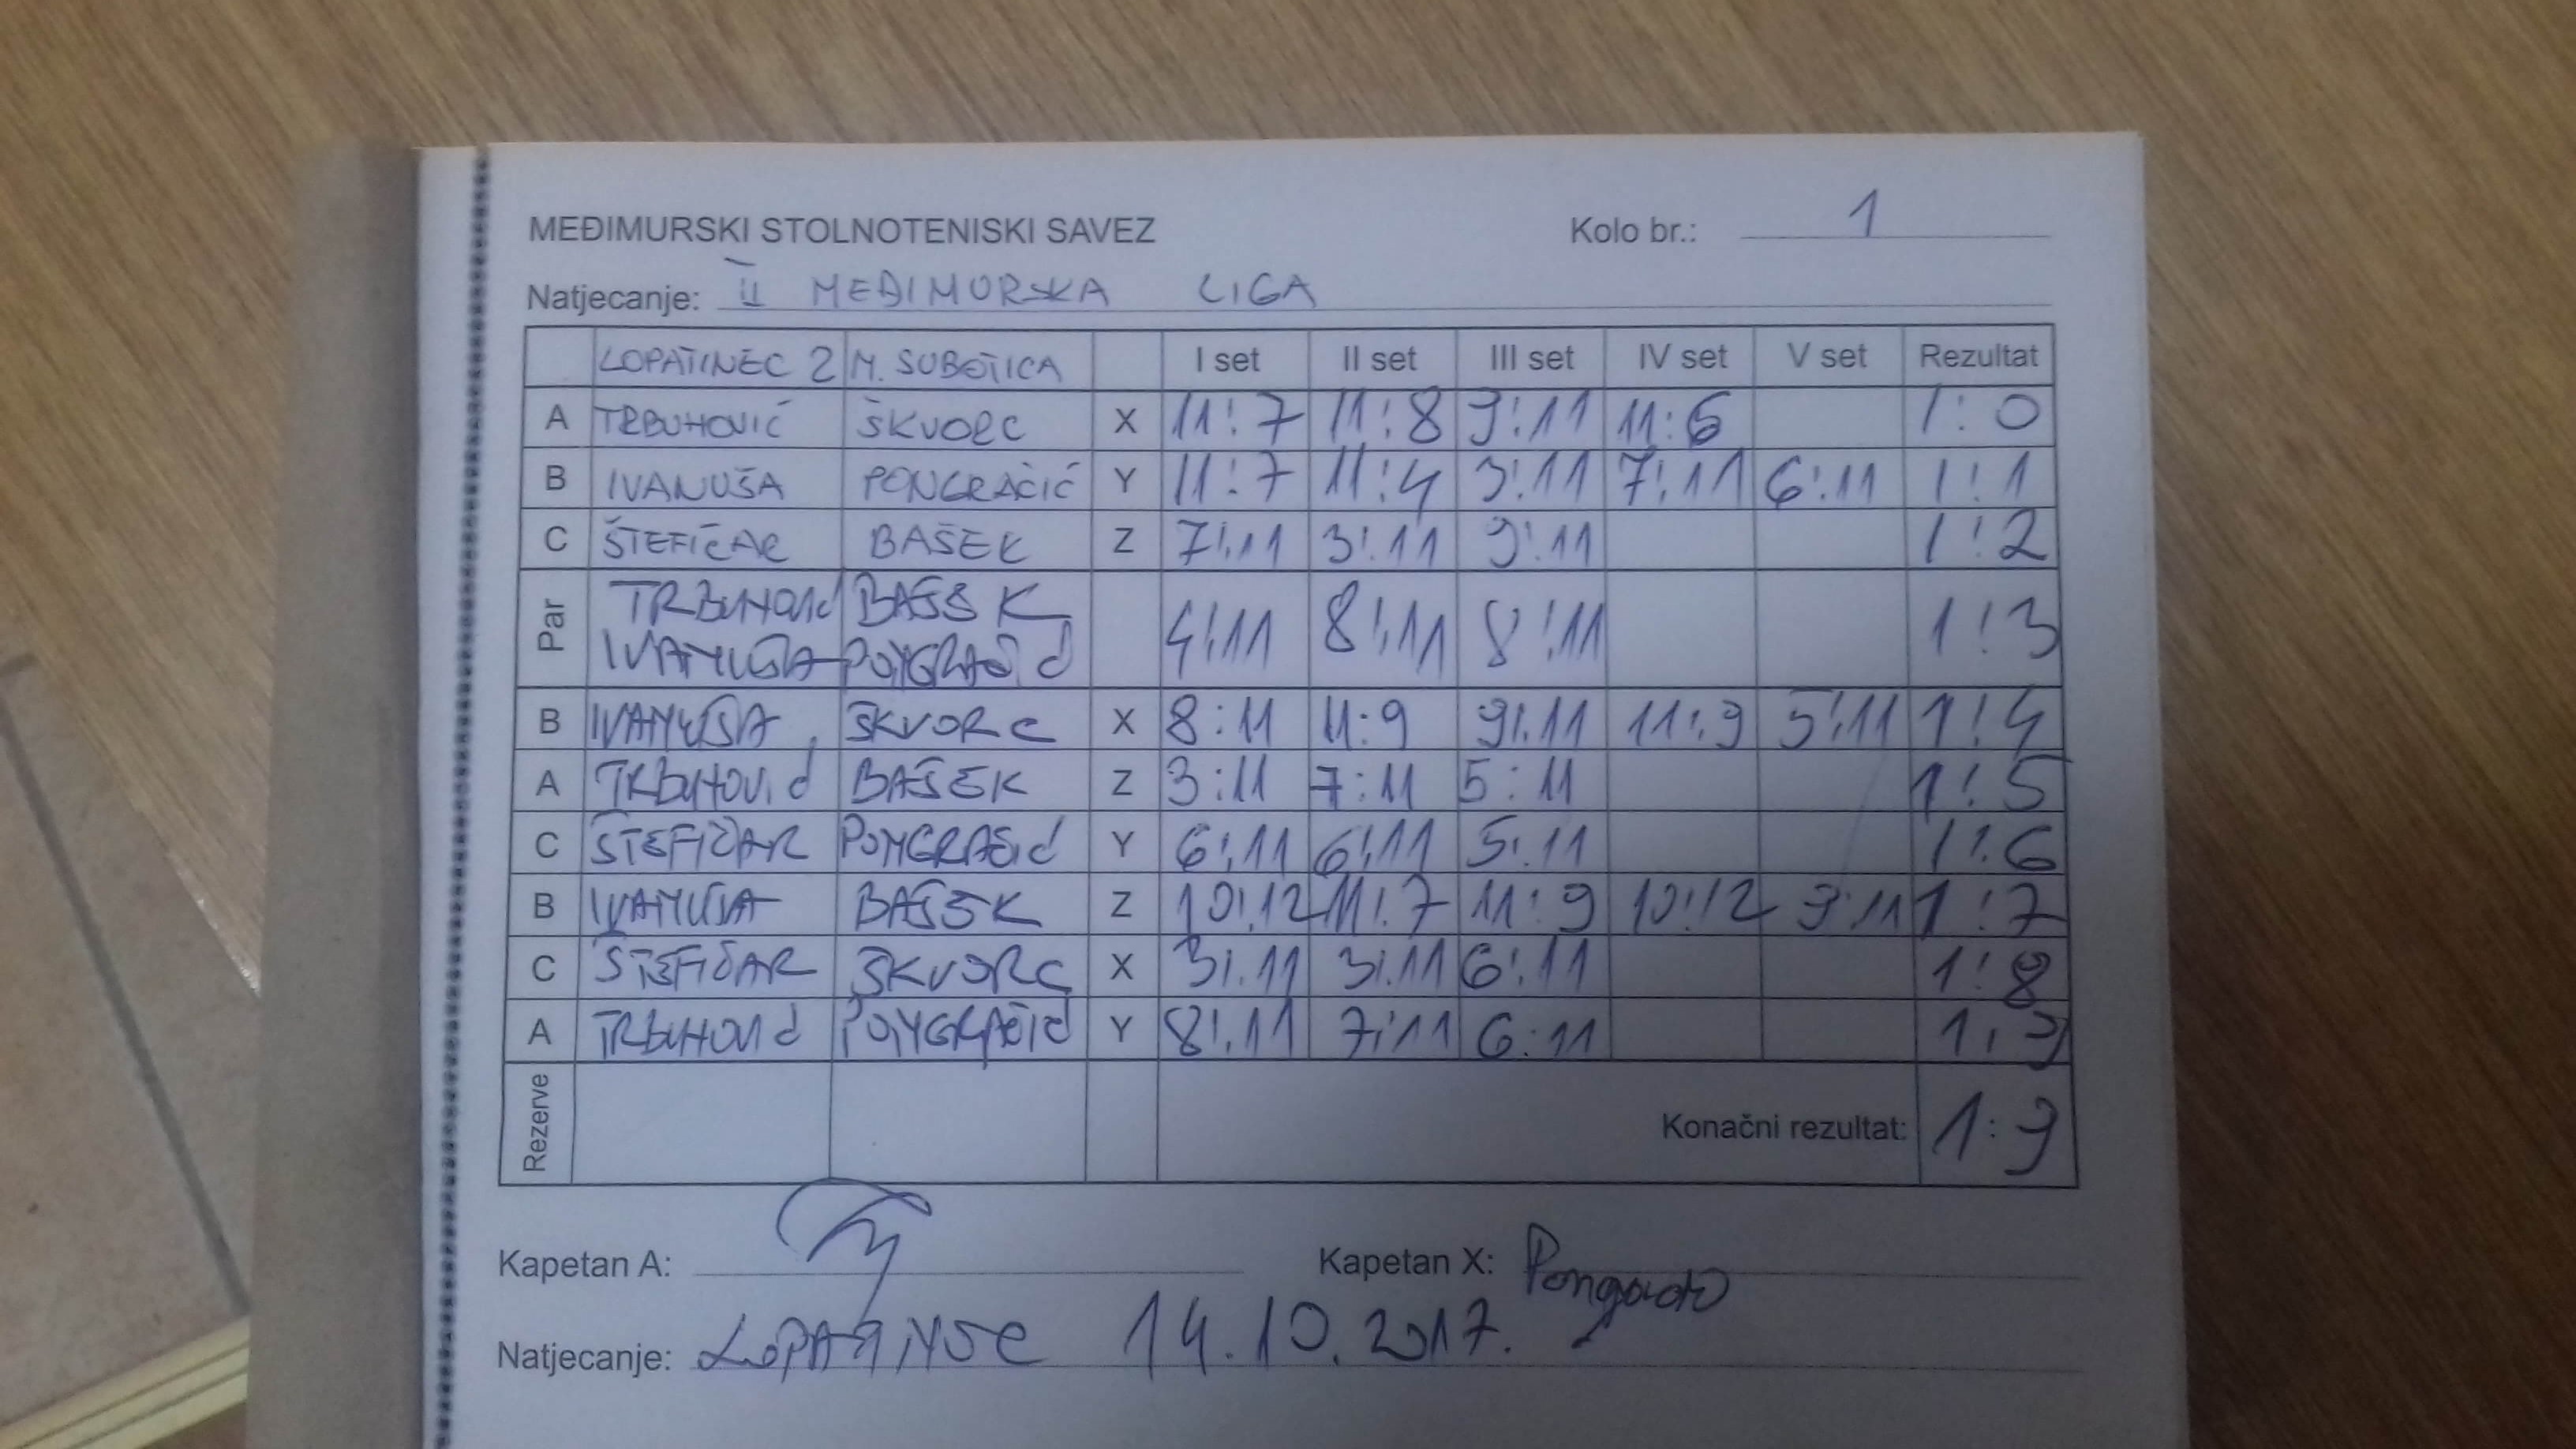 MEĐIMURSKI STOLNOTENISKI SAVEZ Kolo br.: 1
Natjecanje: II MEĐIMURSKA LIGA
LOPATINEC 2 M. SUBOTICA I set II set III set IV set V set Rezultat
A TRBUHOVIĆ ŠKVORC X 11:7 11:8 9:11 11:6 1:0
B IVANUŠA PONGRAČIĆ Y 11:7 11:4 3:11 7:11 6:11 1:1
C ŠTEFIČAR BAŠEK Z 7:11 3:11 9:11 1:2
Par TRBUHOVIĆ BAŠEK
IVANUŠA PONGRAČIĆ 4:11 8:11 8:11 1:3
B IVANUŠA ŠKVORC X 8:11 11:9 9:11 11:9 5:11 1:4
A TRBUHOVIĆ BAŠEK Z 3:11 7:11 5:11 1:5
C ŠTEFIČAR PONGRAČIĆ Y 6:11 6:11 5:11 1:6
B IVANUŠA BAŠEK Z 10:12 11:7 11:9 10:12 9:11 1:7
C ŠTEFIČAR ŠKVORC X 3:11 3:11 6:11 1:8
A TRBUHOVIĆ PONGRAČIĆ Y 8:11 7:11 6:11 1:9
Rezerve Konačni rezultat: 1:9
Kapetan A: Kapetan X:
Natjecanje: LOPATINEC 14.10.2017.